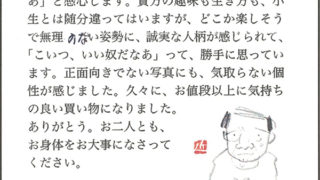 あ」と感心します。貴方の趣味も生き方も、小
生とは随分違ってはいますが、どこか楽しそう
で無理のない姿勢に、誠実な人柄が感じられて、
「こいつ、いい奴だなあ」って、勝手に思ってい
ます。正面向きでない写真にも、気取らない個
性が感じました。久々に、お値段以上に気持ち
の良い買い物になりました。
ありがとう。お二人とも、
お身体をお大事になさって
ください。